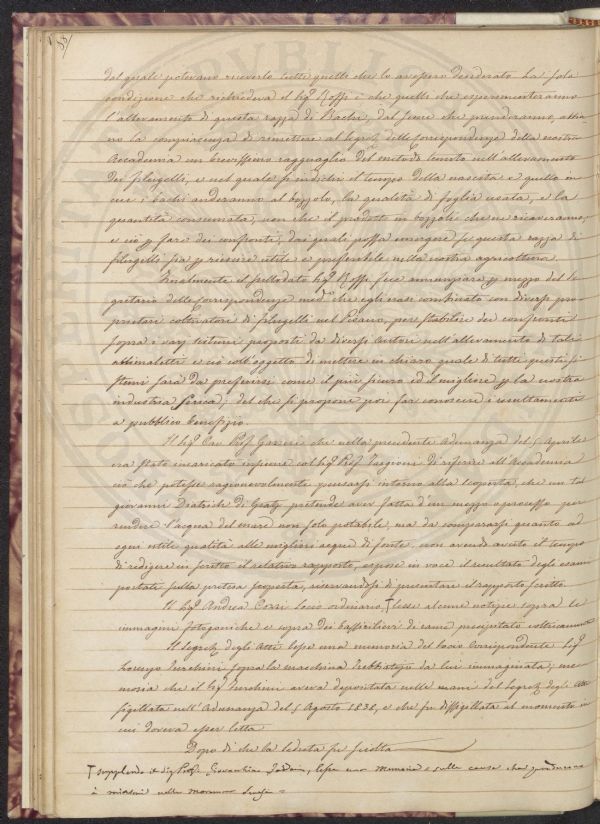 dal quale potevano riceverlo tutti quelli che lo avessero desiderato. La sola
condizione che richiedeva il Sig.r Rossi è che quelli che esperimenteranno
l'allevamento di questa razza di Bachi, dal seme che prenderanno, abbia
no la compiacenza di rimettere al Segret.o delle Corrispondenze della nostra
Accademia un brevissimo ragguaglio del metodo tenuto nell'allevamento
dei filugelli, e nel quale s'indichi il tempo della nascita e quello in
cui i bachi anderanno al bozzolo, la qualità di foglia usata, e la
quantità consumata, non che il prodotto in bozzoli che ne ricaveranno,
e ciò p fare dei confronti, dai quali possa emergere se questa razza di
filugelli sia p riescire utile e preferibile nella nostra agricoltura.
Finalmente il sullodato Sig.r Rossi fece annunziare p mezzo del Se
gretario delle Corrispondenze med.o che egli erasi combinato con diversi pro
prietari coltivatori di filugelli nel Pisano, per stabilire dei confronti
sopra i varj sistemi proposti da diversi autori nell'allevamento di tali
animaletti e ciò coll'oggetto di mettere in chiaro quale di tutti questi si
stemi sarà da preferirsi come il più sicuro ed il migliore p la nostra
industria serica; del che si propone poi far conoscere i resultamenti
a pubblico benefizio.
Il Sig.r Cav. Prof. Gazzeri che nella precedente Adunanza del 5 Aprile
era stato incaricato insieme col Sig.r Prof. Targioni di riferire all'Accademia
ciò che potesse ragionevolmente pensarsi intorno alla scoperta, che un tal
Giovanni Dietrich di Gratz pretende aver fatta d'un mezzo o processo per
rendere l'acqua del mare non solo potabile, ma da compararsi quanto ad
ogni utile qualità alle migliori acque di fonte, non avendo avuto il tempo
di redigere in scritto il relativo rapporto, espose in voce il resultato degli esami
portati sulla pretesa scoperta, riservandosi di presentare il rapporto scritto.
Il Sig.r Andrea Cozzi Socio ordinario,† lesse alcune notizie sopra le
immagini fotogeniche e sopra dei bassirilievi di rame precipitato
Il Segret.o degli Atti lesse una memoria del Socio Corrispondente Sig.r
Lorenzo Turchini sopra la macchina Trebbiatojo da lui immaginata; me
moria che il Sig.r Turchini aveva depositata nelle mani del Segret.o degli Atti
sigillata nell'Adunanza del 5 Agosto 1838, e che fu dissigillata al momento in
cui doveva esser letta.
Dopo di che la seduta fu sciolta
† supplendo il Sig. Prof. Giovacchino Taddei, lesse una Memoria sulle cause che
i miasmi nelle Maremme